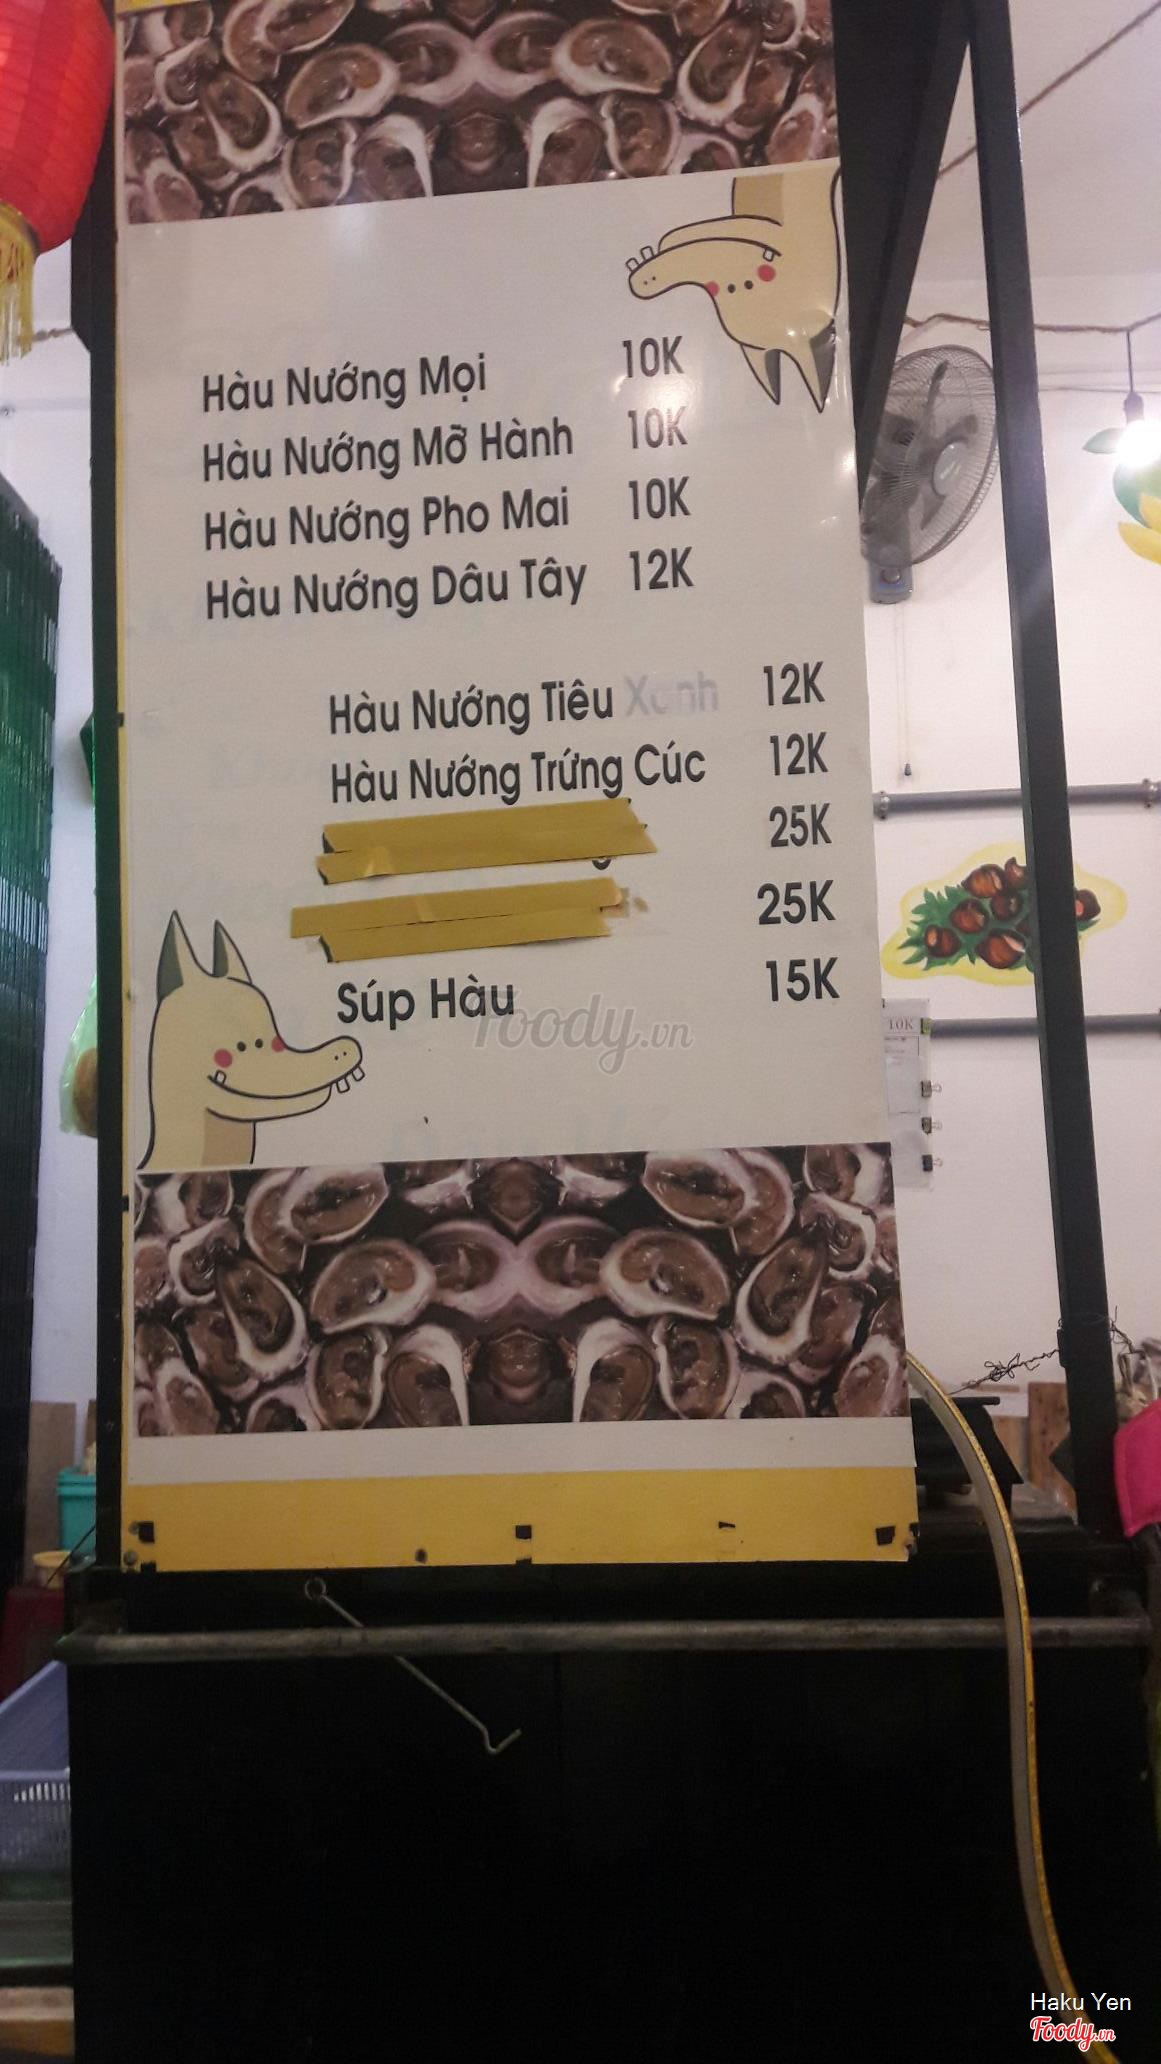 Hàu Nướng Mọi 10K
Hàu Nướng Mỡ Hành 10K
Hàu Nướng Pho Mai 10K
Hàu Nướng Dâu Tây 12K
Hàu Nướng Tiêu Xanh 12K
Hàu Nướng Trứng Cúc 12K
25K
25K
Súp Hàu 15K
Foody.vn
10K
Haku Yen
Foody.vn